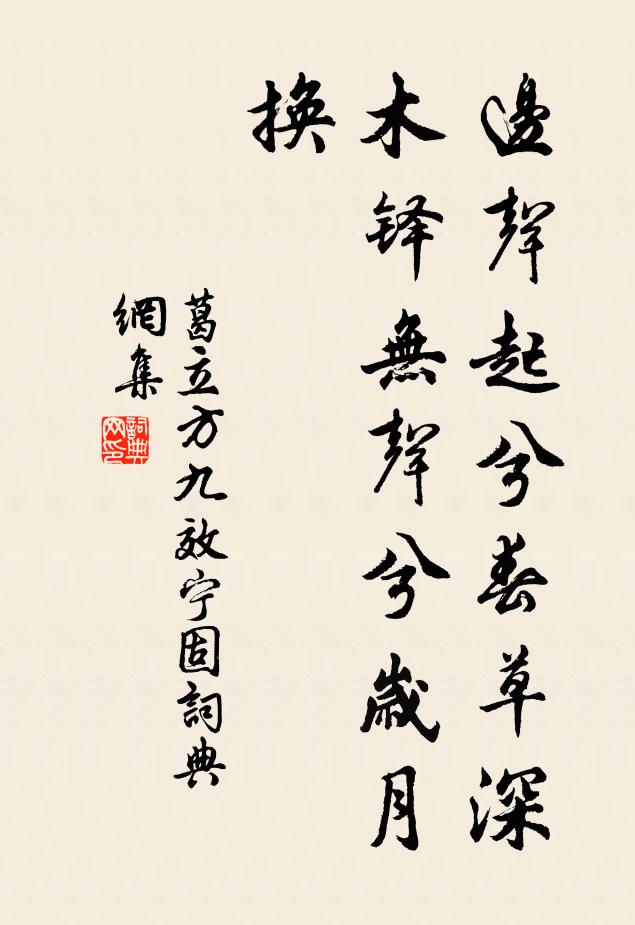 邊聲起兮春草深
木铎無聲兮歲月
換
葛立方九效宁固詞典
網集
詞典
网印